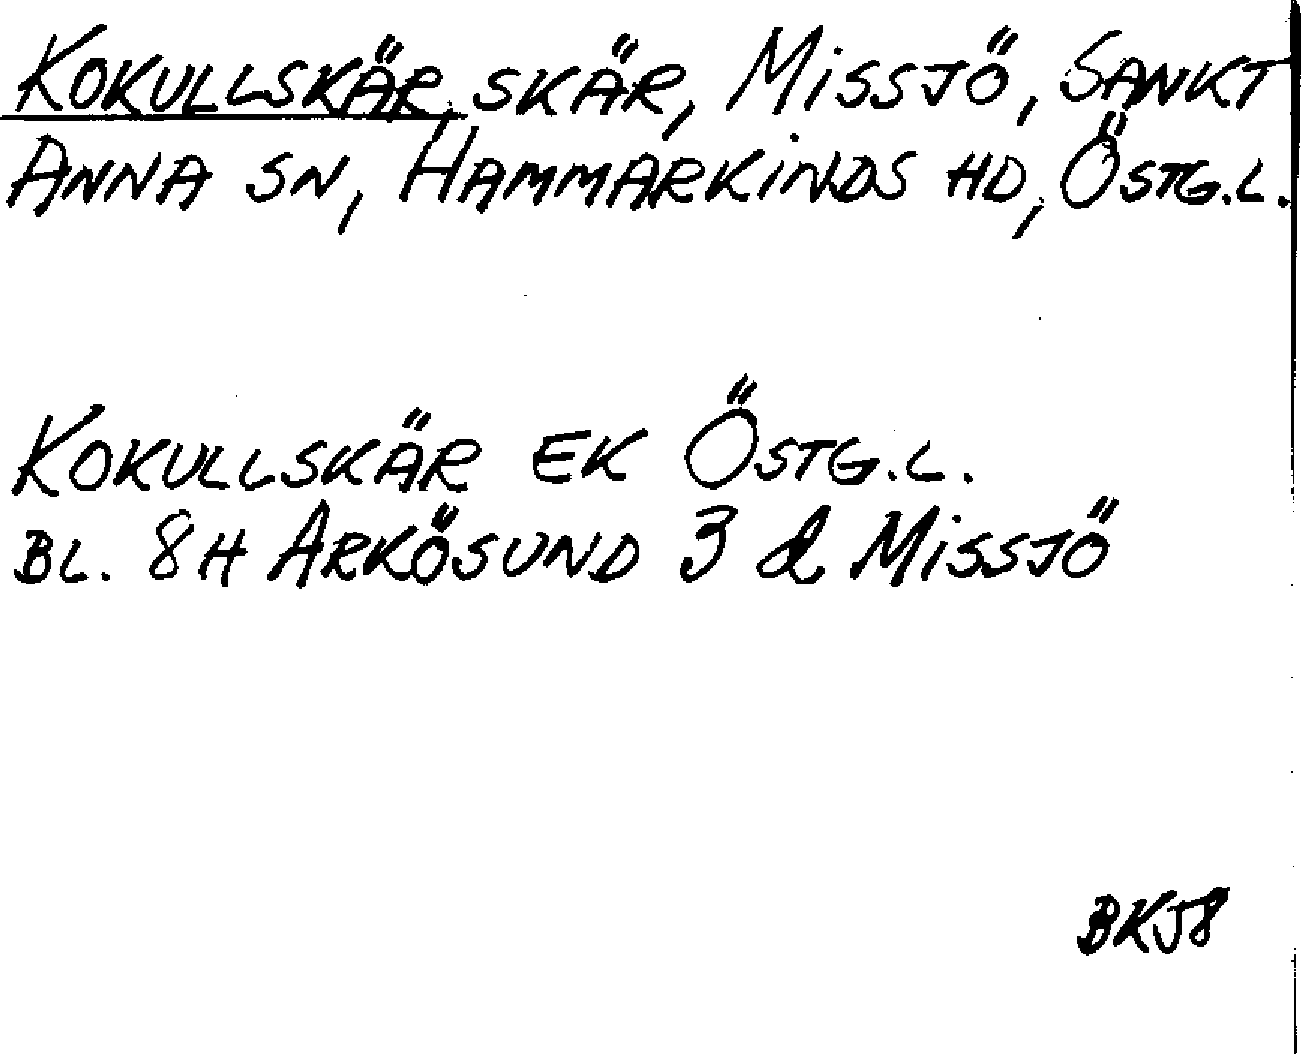 KOKULLSKÄR, SKÄR, MISSJÖ, SANKT
ANNA SN, HAMMARKINDS HD, ÖSTG.L.
KOKULLSKÄR EK ÖSTG.L.
BL. 8H ARKÖSUND 3 d MISSJÖ
BKJ8